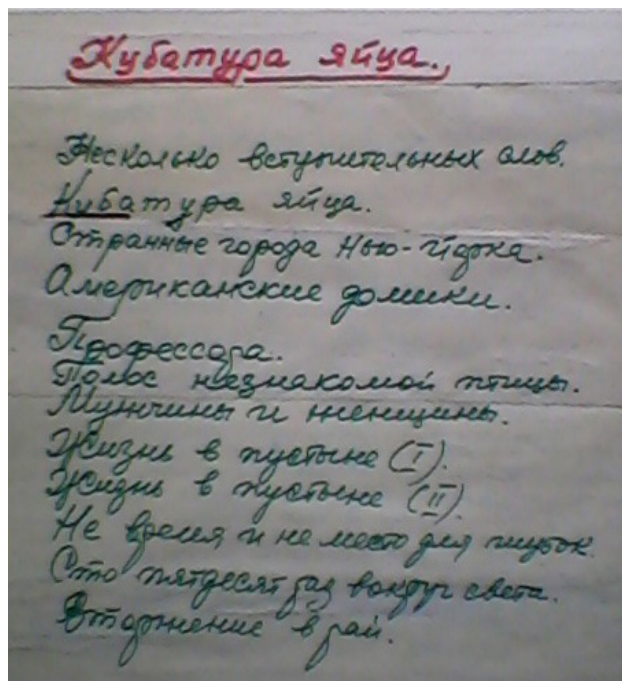 Кубатура яйца.
Несколько вступительных слов.
Кубатура яйца.
Странные города Нью-Йорка.
Американские домики.
Профессора.
Голос незнакомой птицы.
Мужчины и женщины.
Жизнь в пустыне (I).
Жизнь в пустыне (II).
Не время и не место для шуток.
Сто пятдесят раз вокруг света.
Вторжение в рай.